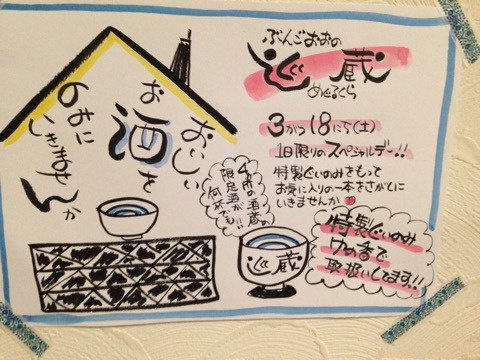 おいしい
お酒を
のみに
いきませんか
ぶんごおおの
巡蔵
めぐるくら
3がつ18にち(土)
1日限りのスペシャルデー!!
特製ぐいのみをもって
お気に入りの一本をさがしに
いきませんか
4市の酒蔵。
限定酒が
何杯でも!!
巡蔵
特製ぐいのみ
取扱いしてます!!